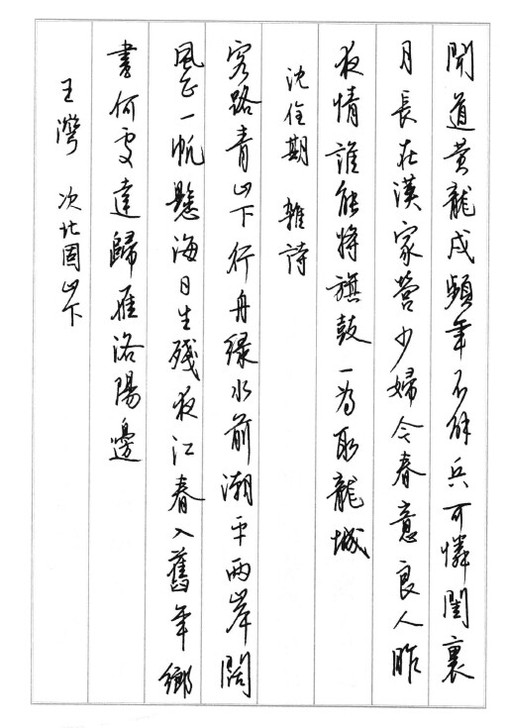 聞道黃龍戍頻年不解兵可憐閨裏
月長在漢家營少婦今春意良人昨
夜情誰能將旗鼓一為取龍城
沈佺期 雜詩
客路青山下行舟綠水前潮平兩岸闊
風正一帆懸海日生殘夜江春入舊年鄉
書何處達歸雁洛陽邊
王灣 次北固山下